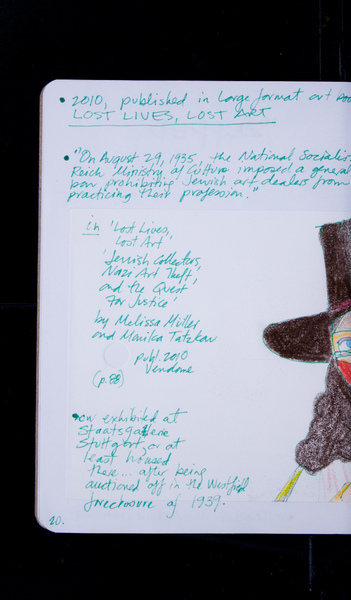 • 2010, published in large format art boo
LOST LIVES, LOST ART
• "On August 29, 1935, the National Socialis
Reich Ministry of Culture imposed a general
ban prohibiting Jewish art dealers from
practicing their profession."
in 'Lost Lives,
Lost Art'
'Jewish Collectors,
Nazi Art Theft,
and the Quest
for Justice'
by Melissa Müller
and Monika Tatzkow
publ. 2010
Vendome
(p. 88)
• ow exhibited at
Staatsgallerie
Stuttgart, or at
least housed
there... after being
auctioned off in the Westfield
foreclosure of 1939.
20.